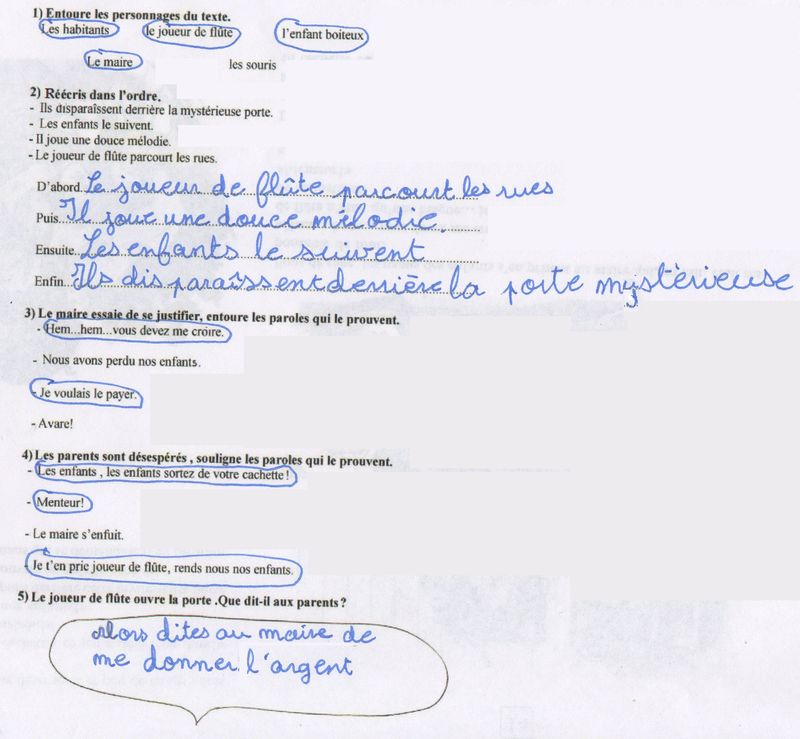 1) Entoure les personnages du texte.
Les habitants le joueur de flûte l'enfant boiteux
Le maire les souris
2) Réécris dans l'ordre.
- Ils disparaîssent derrière la mystérieuse porte.
- Les enfants le suivent.
- Il joue une douce mélodie.
- Le joueur de flûte parcourt les rues.
D'abord..Le joueur de flûte parcourt les rues
Puis..Il joue une douce mélodie.
Ensuite..Les enfants le suivent
Enfin..Ils disparaîssent derrière la porte mystérieuse
3) Le maire essaie de se justifier, entoure les paroles qui le prouvent.
- Hem...hem...vous devez me croire.
- Nous avons perdu nos enfants.
- Je voulais le payer.
- Avare!
4) Les parents sont désespérés , souligne les paroles qui le prouvent.
- Les enfants , les enfants sortez de votre cachette !
- Menteur!
- Le maire s'enfuit.
- Je t'en prie joueur de flûte, rends nous nos enfants.
5) Le joueur de flûte ouvre la porte .Que dit-il aux parents ?
Alors dites au maire de
me donner l'argent